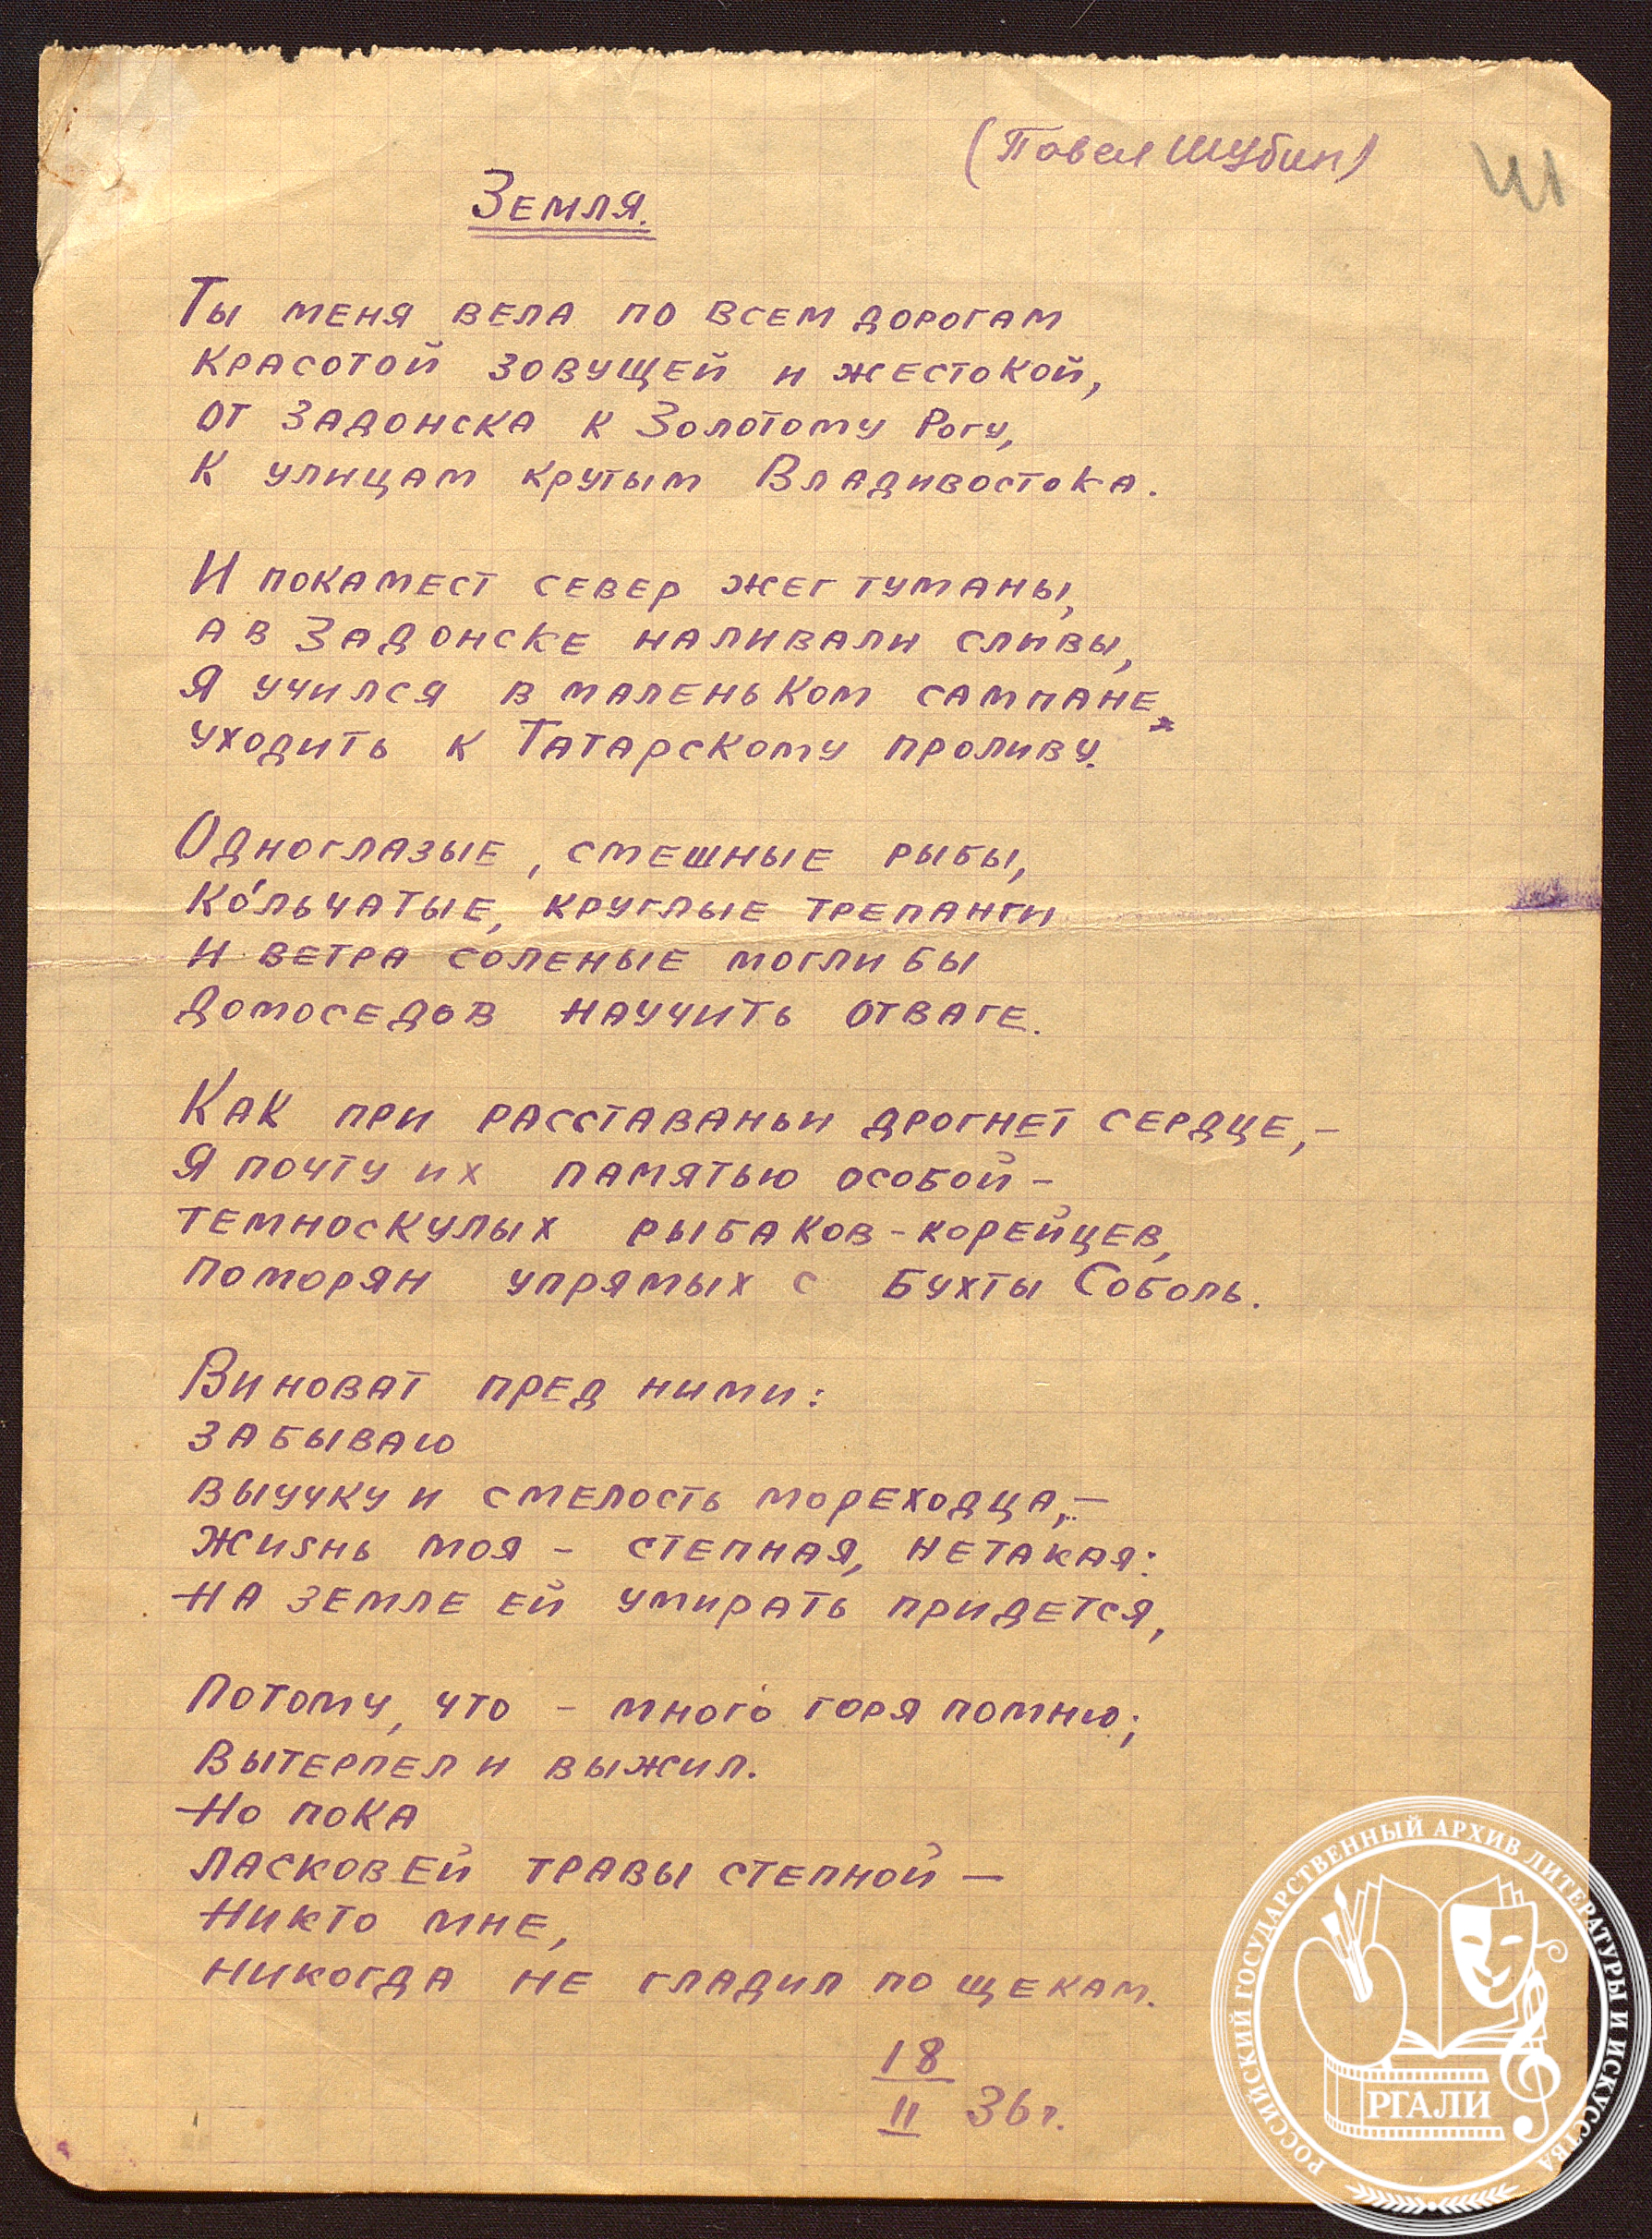 (Павел Шубин)
41
Земля.
Ты меня вела по всем дорогам
красотой зовущей и жестокой,
от Задонска к Золотому Рогу,
к улицам крутым Владивостока.
И покамест север жег туманы,
а в Задонске наливали сливы,
я учился в маленьком сампане
уходить к Татарскому проливу.
Одноглазые, смешные рыбы,
ко́льчатые, круглые трепанги
и ветра соленые могли бы
домоседов научить отваге.
Как при расставаньи дрогнет сердце,—
я почту их памятью особой—
темноскулых рыбаков-корейцев,
поморян упрямых с бухты Соболь.
Виноват пред ними:
забываю
выучку и смелость мореходца,—
жизнь моя — степная, нетакая:
на земле ей умирать придется,
потому, что — много горя помню;
вытерпел и выжил.
Но пока
ласковей травы степной —
никто мне,
никогда не гладил по щекам.
18
II 36 г.
РОССИЙСКИЙ ГОСУДАРСТВЕННЫЙ АРХИВ ЛИТЕРАТУРЫ И ИСКУССТВА
РГАЛИ